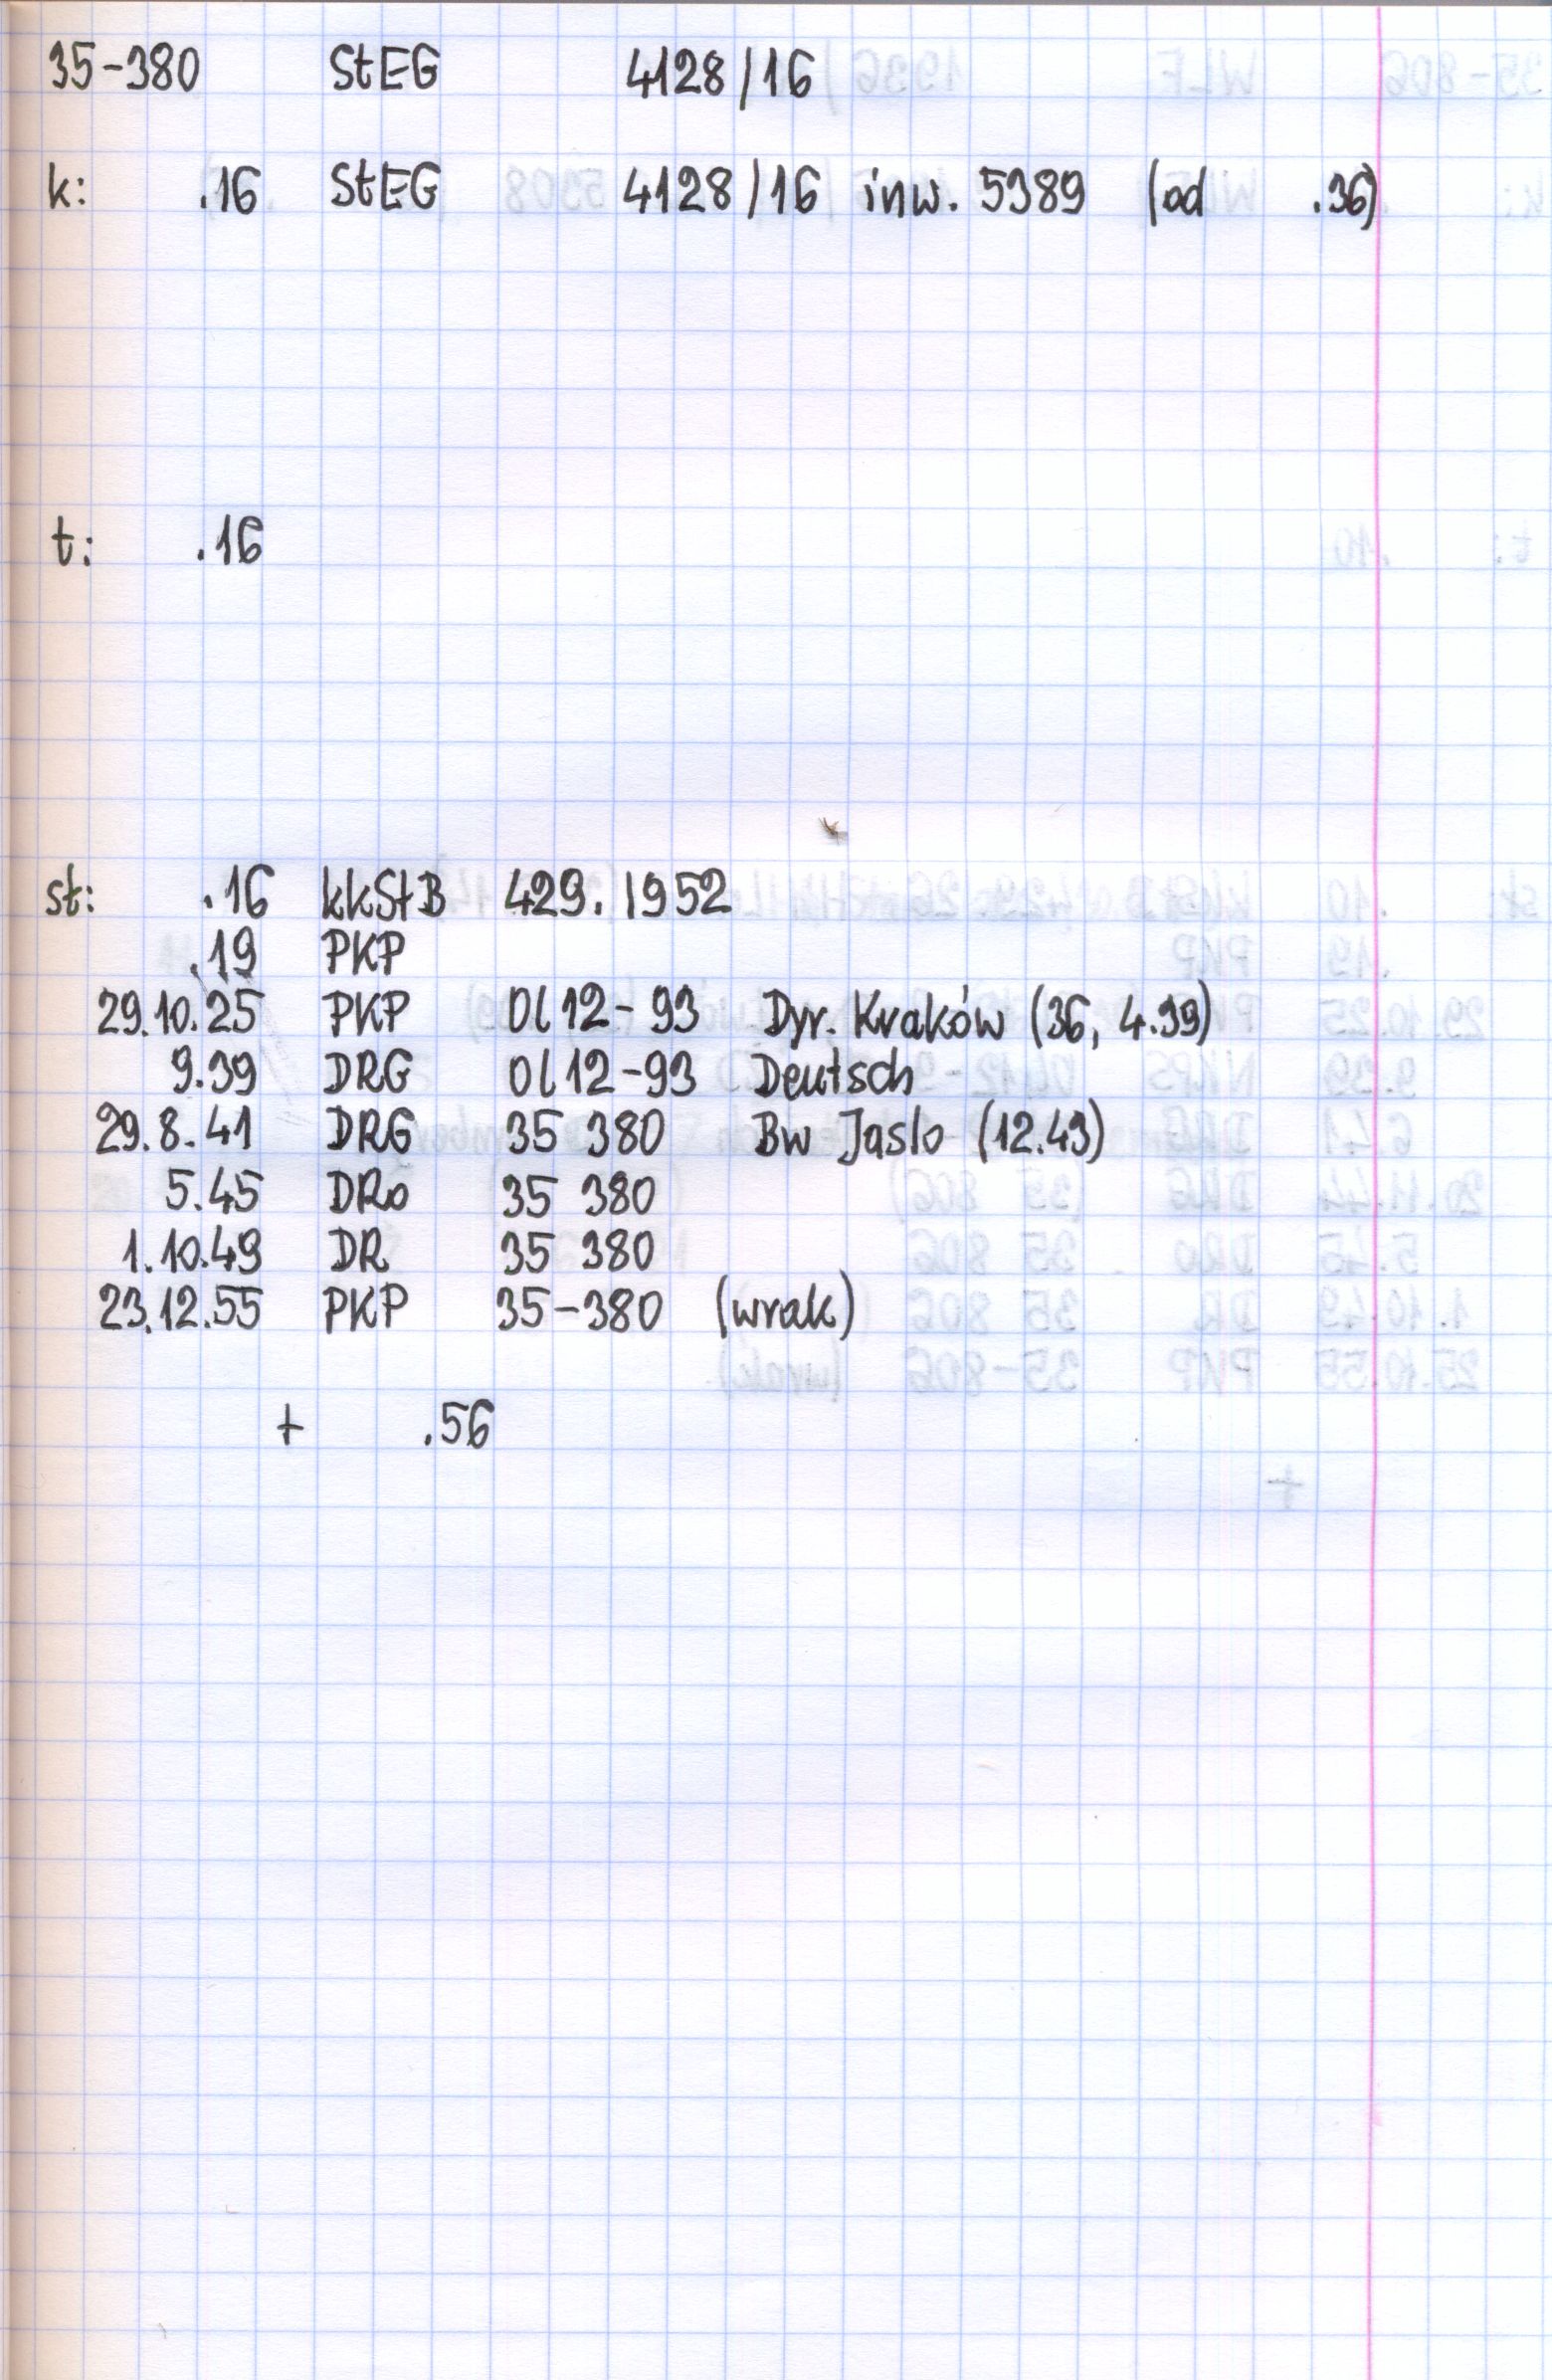 35-380 StEG 4128/16
k: .16 StEG 4128/16 inw. 5389 (od .36)
t: .16
st: .16 kkStB 429.1952
.19 PKP
29.10.25 PKP Ol12-93 Dyr. Kraków (36, 4.39)
9.39 DRG Ol12-93 Deutsch
29.8.41 DRG 35 380 Bw Jaslo (12.43)
5.45 DRo 35 380
1.10.49 DR 35 380
23.12.55 PKP 35-380 (wrak)
+ .56